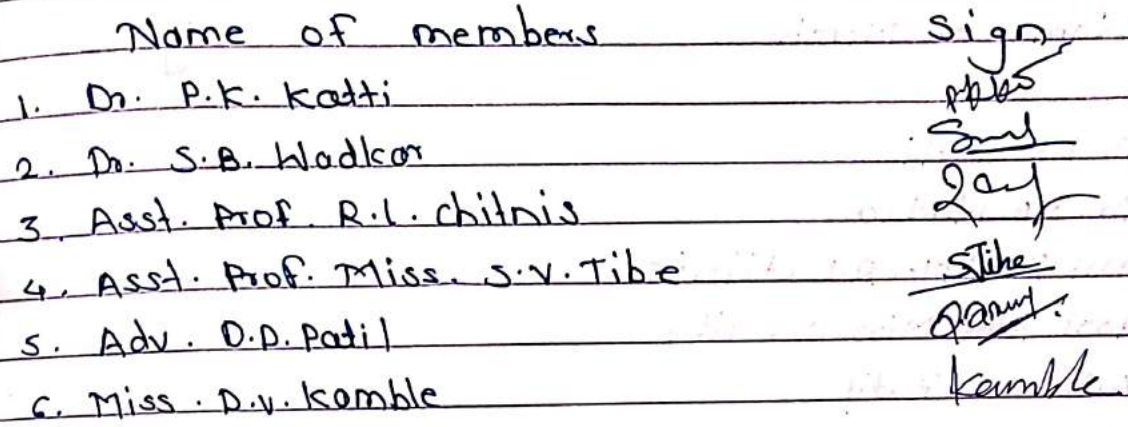 Name of members Sign
1. Dr. P.K. Katti
2. Dr. S.B. Wadkar
3. Asst. Prof. R.L. Chitnis
4. Asst. Prof. Miss. S.V. Tibe STibe
5. Adv. D.D. Patil
6. Miss. D.V. Kamble Kamble